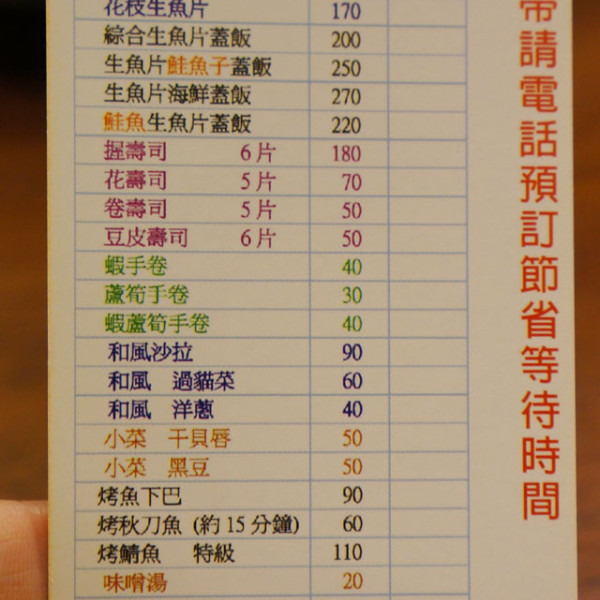 花枝生魚片 170
綜合生魚片蓋飯 200
生魚片鮭魚子蓋飯 250
生魚片海鮮蓋飯 270
鮭魚生魚片蓋飯 220
握壽司 6片 180
花壽司 5片 70
卷壽司 5片 50
豆皮壽司 6片 50
蝦手卷 40
蘆筍手卷 30
蝦蘆筍手卷 40
和風沙拉 90
和風 過貓菜 60
和風 洋蔥 40
小菜 干貝唇 50
小菜 黑豆 50
烤魚下巴 90
烤秋刀魚 (約15分鐘) 60
烤鯖魚 特級 110
味噌湯 20
請電話預訂節省等待時間